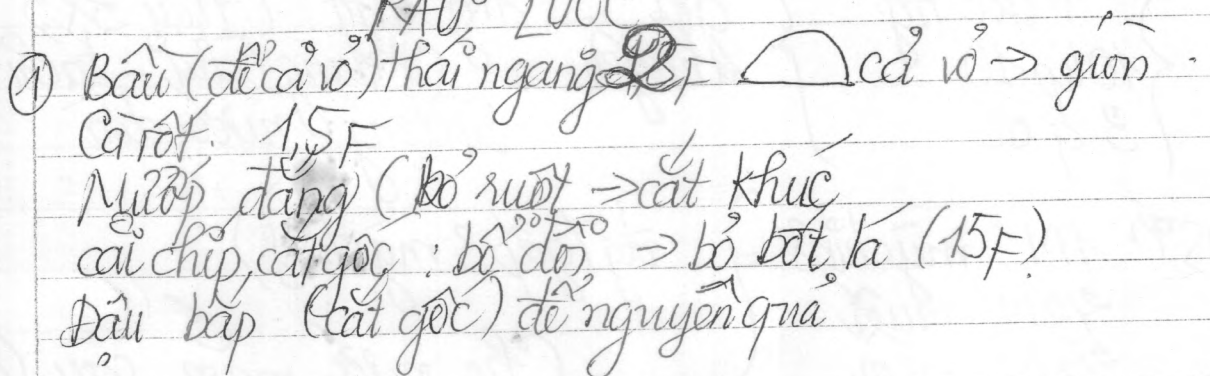 RAU LUỘC
① Bầu (để cả vỏ) thái ngang 2F cả vỏ → giòn.
Cà rốt. 1,5F
Mướp đắng (bỏ ruột → cắt khúc
cải chíp, cắt gốc: bổ đôi → bỏ bớt lá (15F)
Đậu bắp (cắt gốc) để nguyên quả